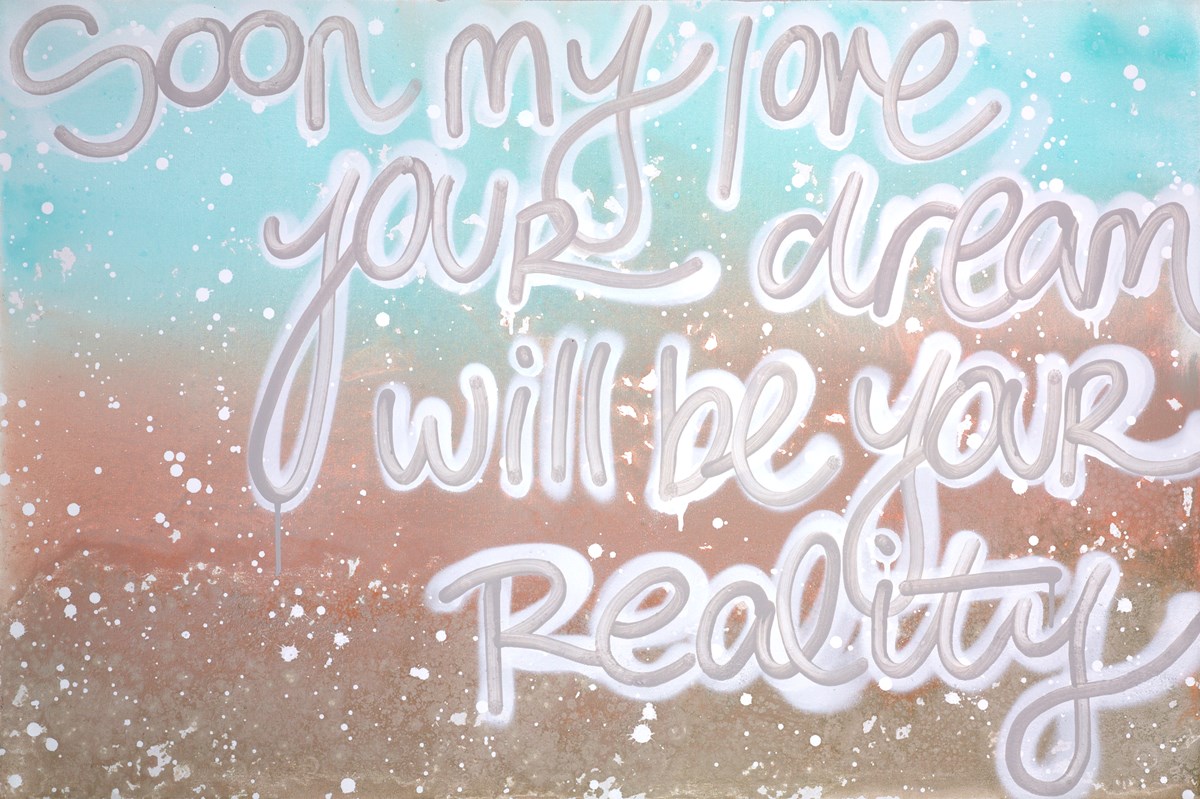 Soon my love
youR dream
will be youR
Reality